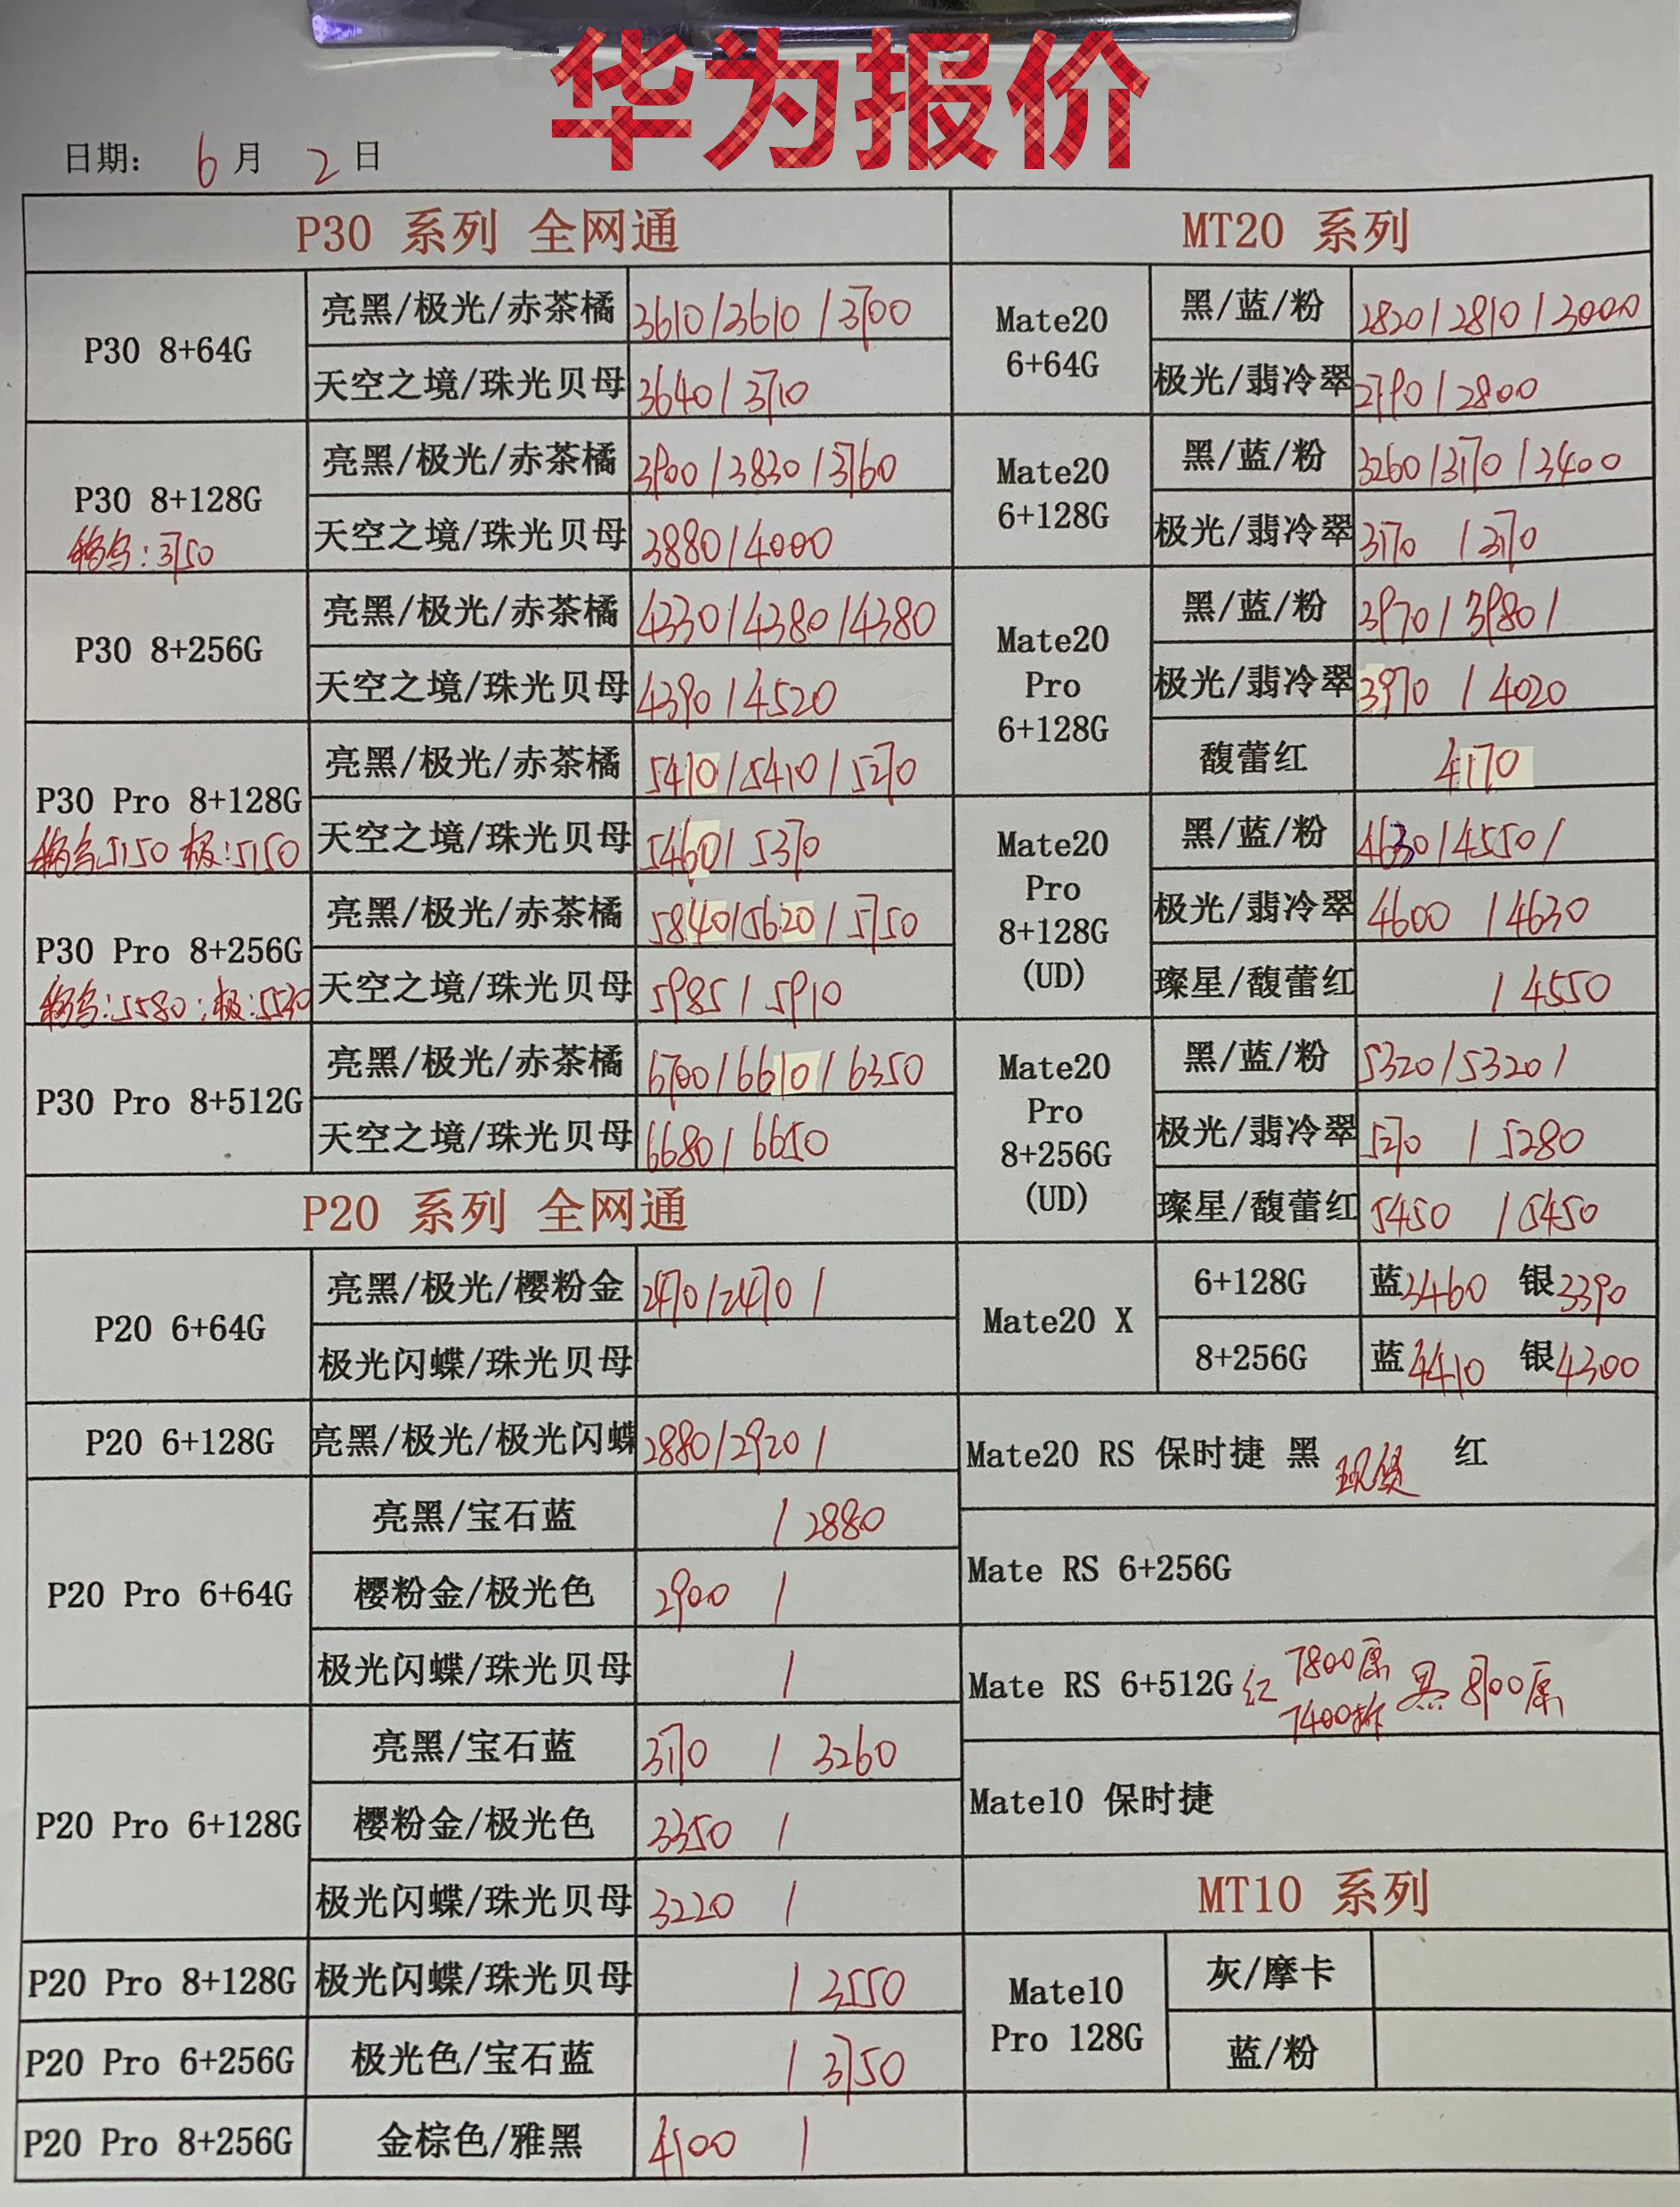 华为报价
日期: 6月 2日
P30 系列 全网通
P30 8+64G
亮黑/极光/赤茶橘 3610/3610/3700
天空之境/珠光贝母 3640/3710
P30 8+128G
:3750
亮黑/极光/赤茶橘 3900/3830/3760
天空之境/珠光贝母 3880/4000
P30 8+256G
亮黑/极光/赤茶橘 4330/4380/4380
天空之境/珠光贝母 4390/4520
P30 Pro 8+128G
5150 极:5150
亮黑/极光/赤茶橘 5410/5410/5270
天空之境/珠光贝母 5460/5370
P30 Pro 8+256G
:5580;极:5530
亮黑/极光/赤茶橘 5840/5620/5750
天空之境/珠光贝母 5985/5910
P30 Pro 8+512G
亮黑/极光/赤茶橘 6700/6610/6350
天空之境/珠光贝母 6680/6650
P20 系列 全网通
P20 6+64G
亮黑/极光/樱粉金 2470/2470/
极光闪蝶/珠光贝母
P20 6+128G
亮黑/极光/极光闪蝶 2880/2920/
P20 Pro 6+64G
亮黑/宝石蓝 /2880
樱粉金/极光色 2900 /
极光闪蝶/珠光贝母 /
P20 Pro 6+128G
亮黑/宝石蓝 3170 / 3260
樱粉金/极光色 3350 /
极光闪蝶/珠光贝母 3220 /
P20 Pro 8+128G 极光闪蝶/珠光贝母 /3550
P20 Pro 6+256G 极光色/宝石蓝 /3750
P20 Pro 8+256G 金棕色/雅黑 4100 /
MT20 系列
Mate20
6+64G
黑/蓝/粉 2820/2810/3000
极光/翡冷翠 2790/2800
Mate20
6+128G
黑/蓝/粉 3260/3170/3400
极光/翡冷翠 3170 /3170
Mate20
Pro
6+128G
黑/蓝/粉 3970/3980/
极光/翡冷翠 3970 /4020
馥蕾红 4170
Mate20
Pro
8+128G
(UD)
黑/蓝/粉 4630/4550/
极光/翡冷翠 4600 /4630
璨星/馥蕾红 /4550
Mate20
Pro
8+256G
(UD)
黑/蓝/粉 5320/5320/
极光/翡冷翠 5270 /5280
璨星/馥蕾红 5450 /5450
Mate20 X
6+128G 蓝3460 银3390
8+256G 蓝4410 银4300
Mate20 RS 保时捷 黑 现货 红
Mate RS 6+256G
Mate RS 6+512G 红 7800原 黑 8100原
7400拆
Mate10 保时捷
MT10 系列
Mate10
Pro 128G
灰/摩卡
蓝/粉